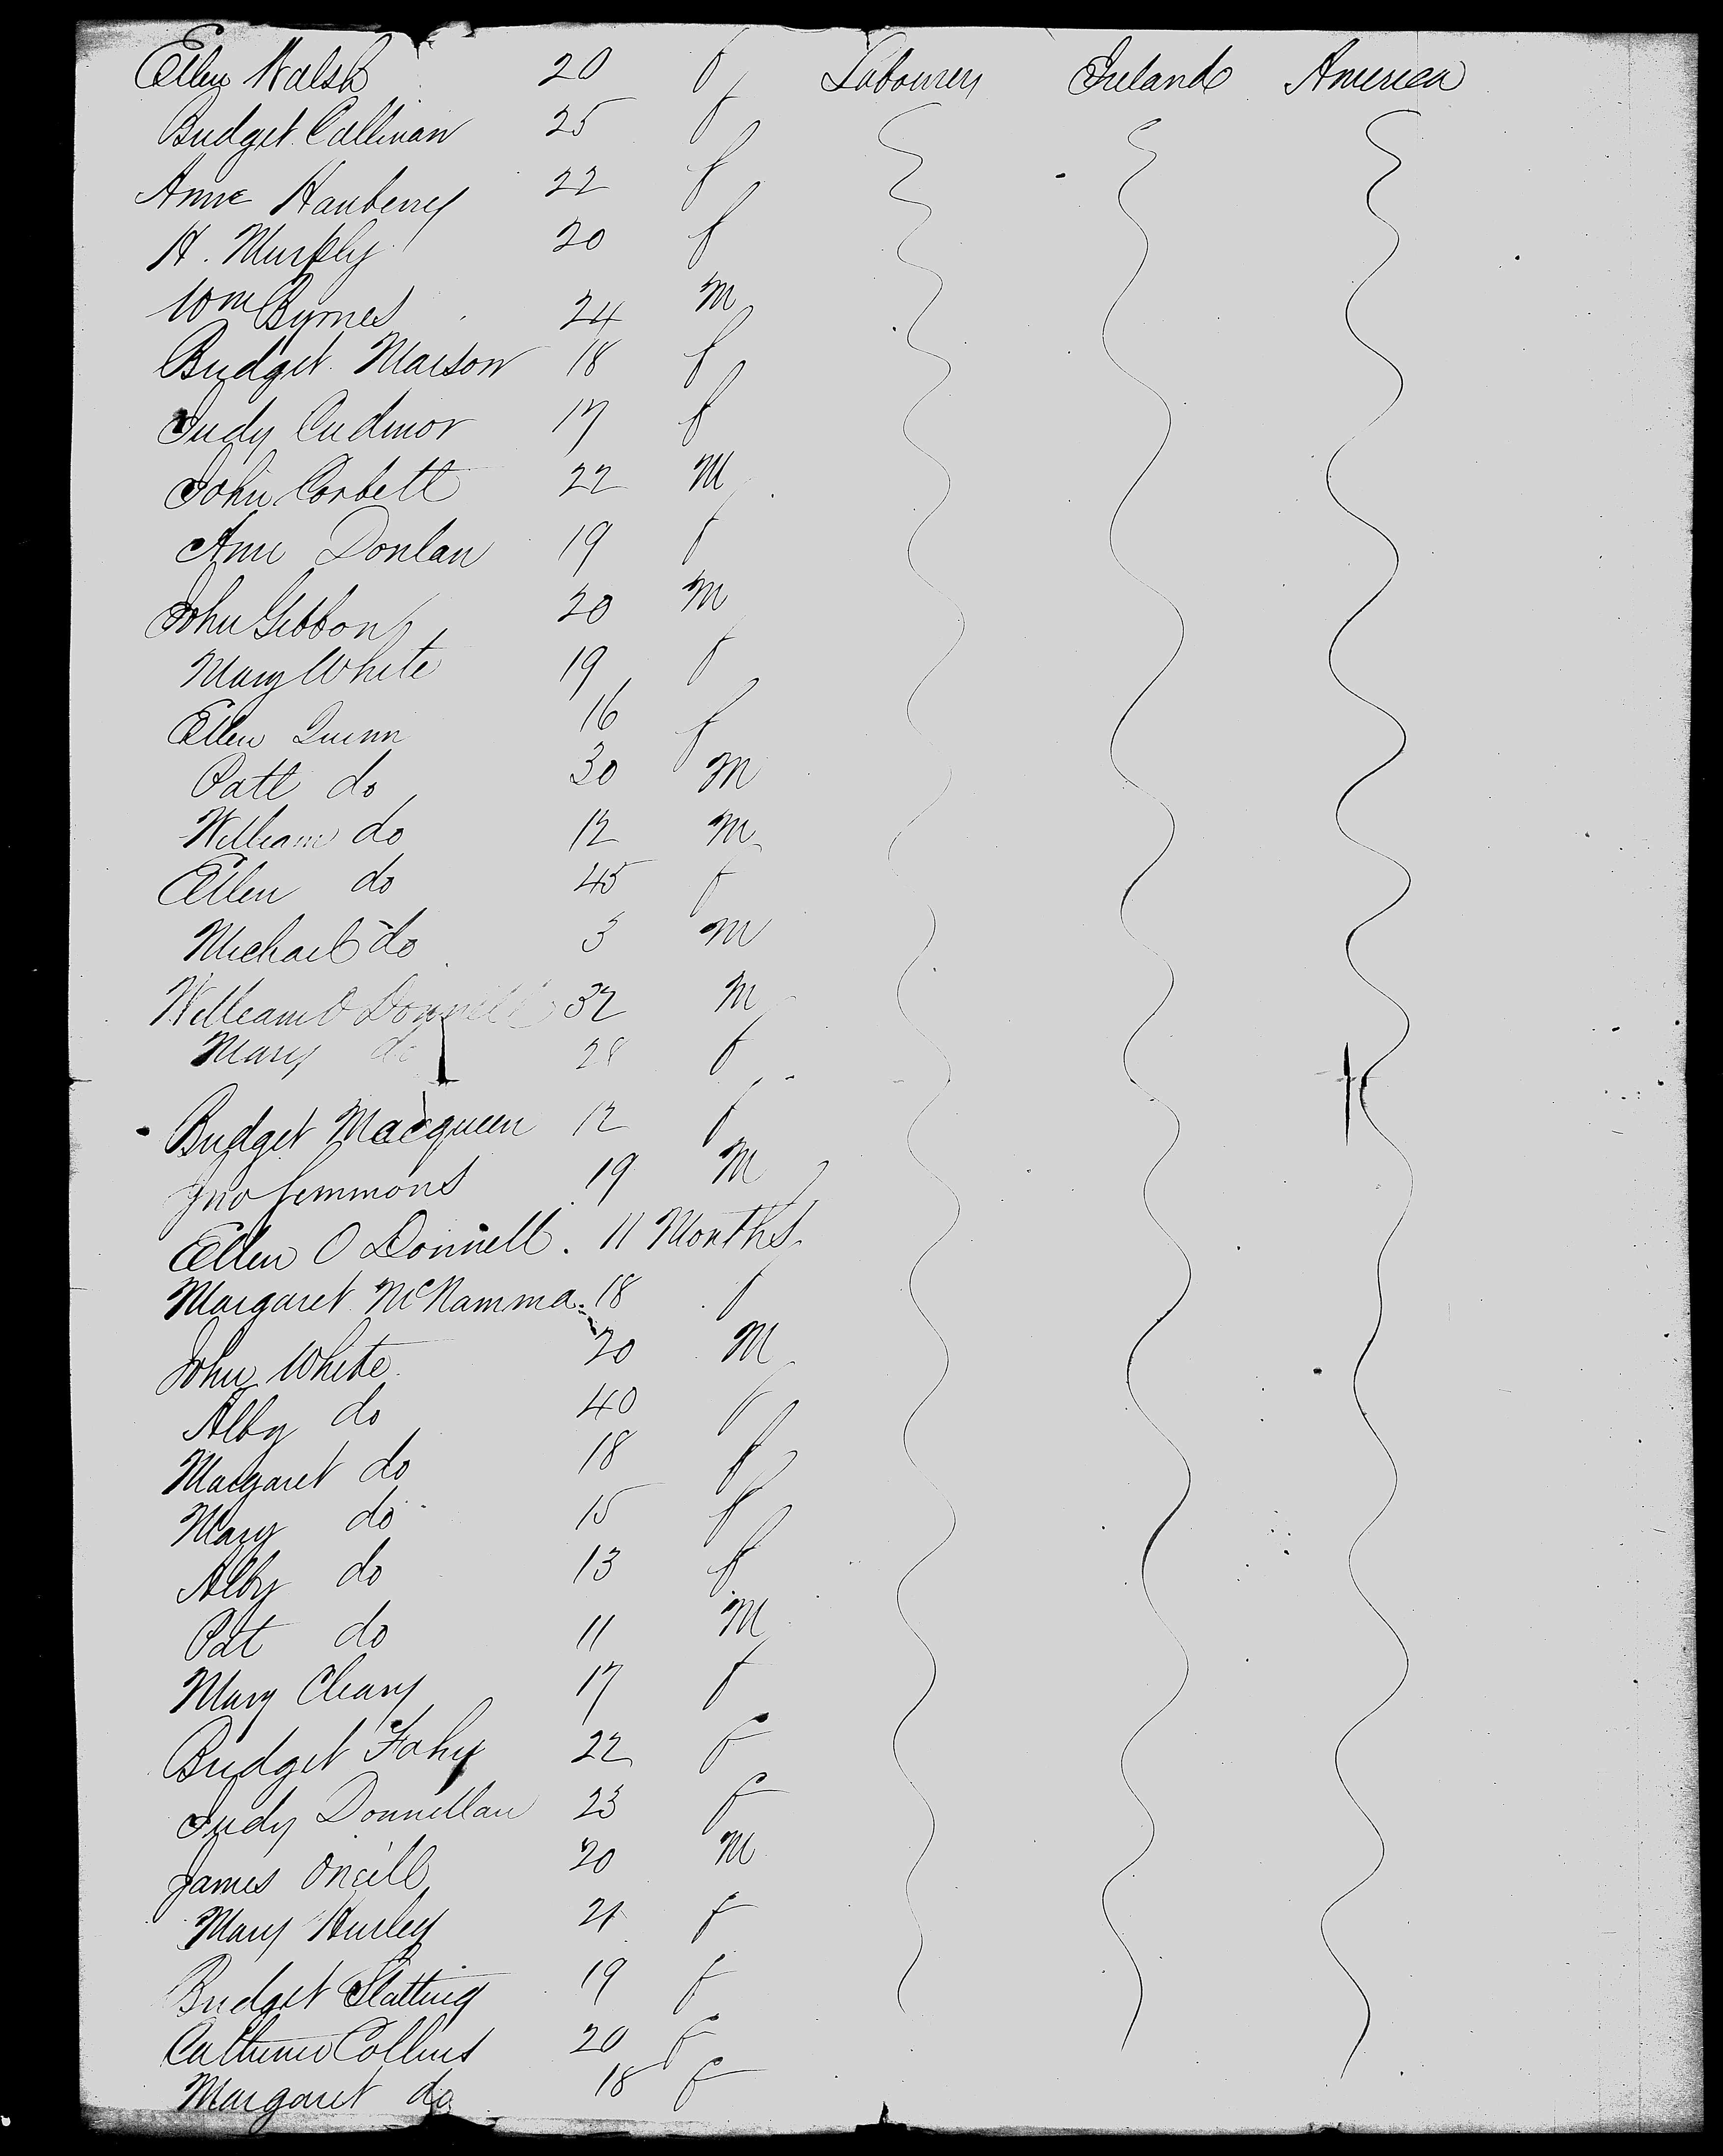 Ellen Walsh 20 f Labourers Ireland America
Bridget Callinan 25 f
Anne Hanberry 22 f
H. Murphy 20 f
Wm Byrnes 24 M
Bridget Marson 18 f
Judy Cudmor 17 f
John Corbett 22 M
Ann Donlan 19 f
John Gibbons 20 M
Mary White 19 f
Ellen Quinn 16 f
Patt do 30 M
William do 12 M
Ellen do 45 f
Michael do 3 M
William O Donnell 32 M
Mary do 28 f
Bridget Macqueen 12 f
Jno Semmons 19 M
Ellen O Donnell. 11 Months
Margaret McNamma. 18 f
John White 20 M
Alby do 40 f
Margaret do 18 f
Mary do 15 f
Alby do 13 f
Pat do 11 M
Mary Cleary 17 f
Bridget Fahy 22 f
Judy Donnellan 23 f
James Oneill 20 M
Mary Hurley 21 f
Bridget Slattery 19 f
Catherine Collins 20 f
Margaret do 18 f